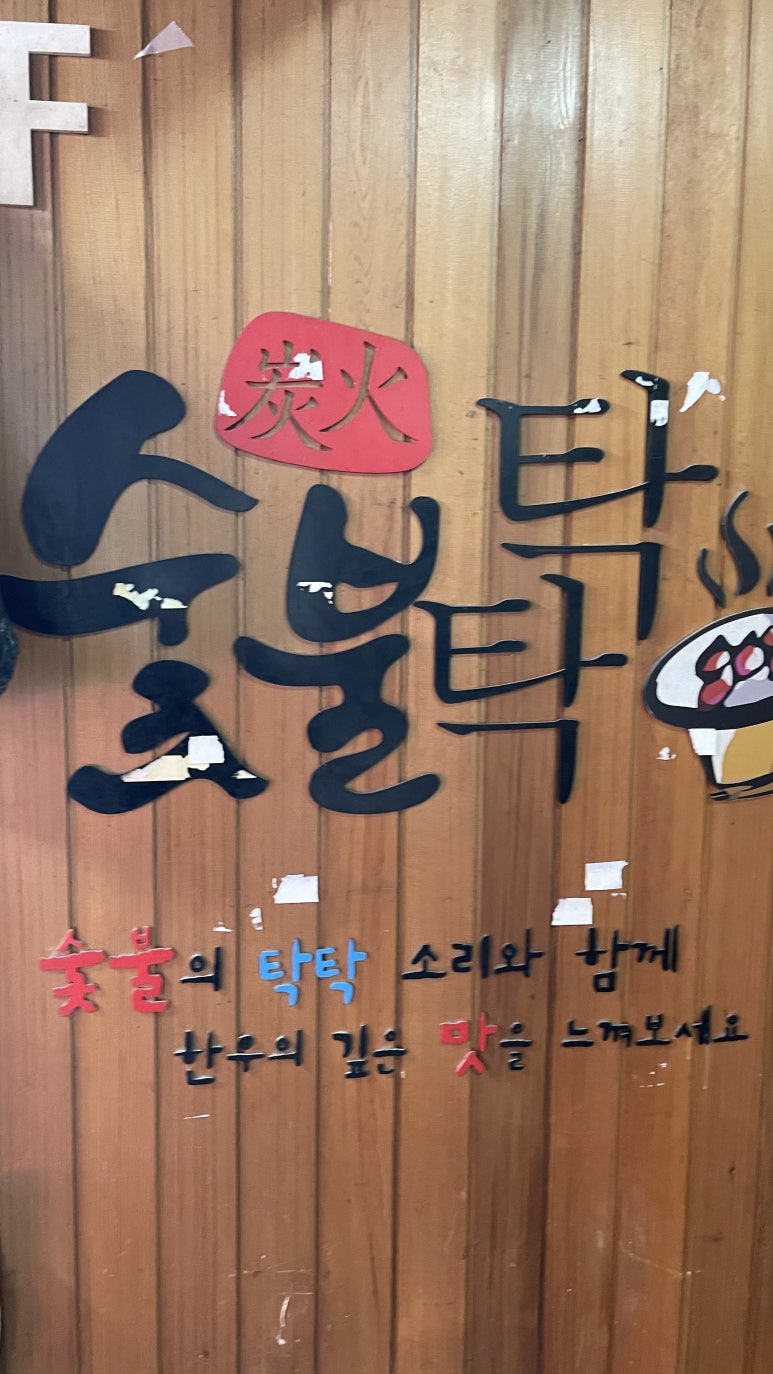 F
炭火
숯불
탁
탁
숯불의 탁탁 소리와 함께
한우의 깊은 맛을 느껴보세요